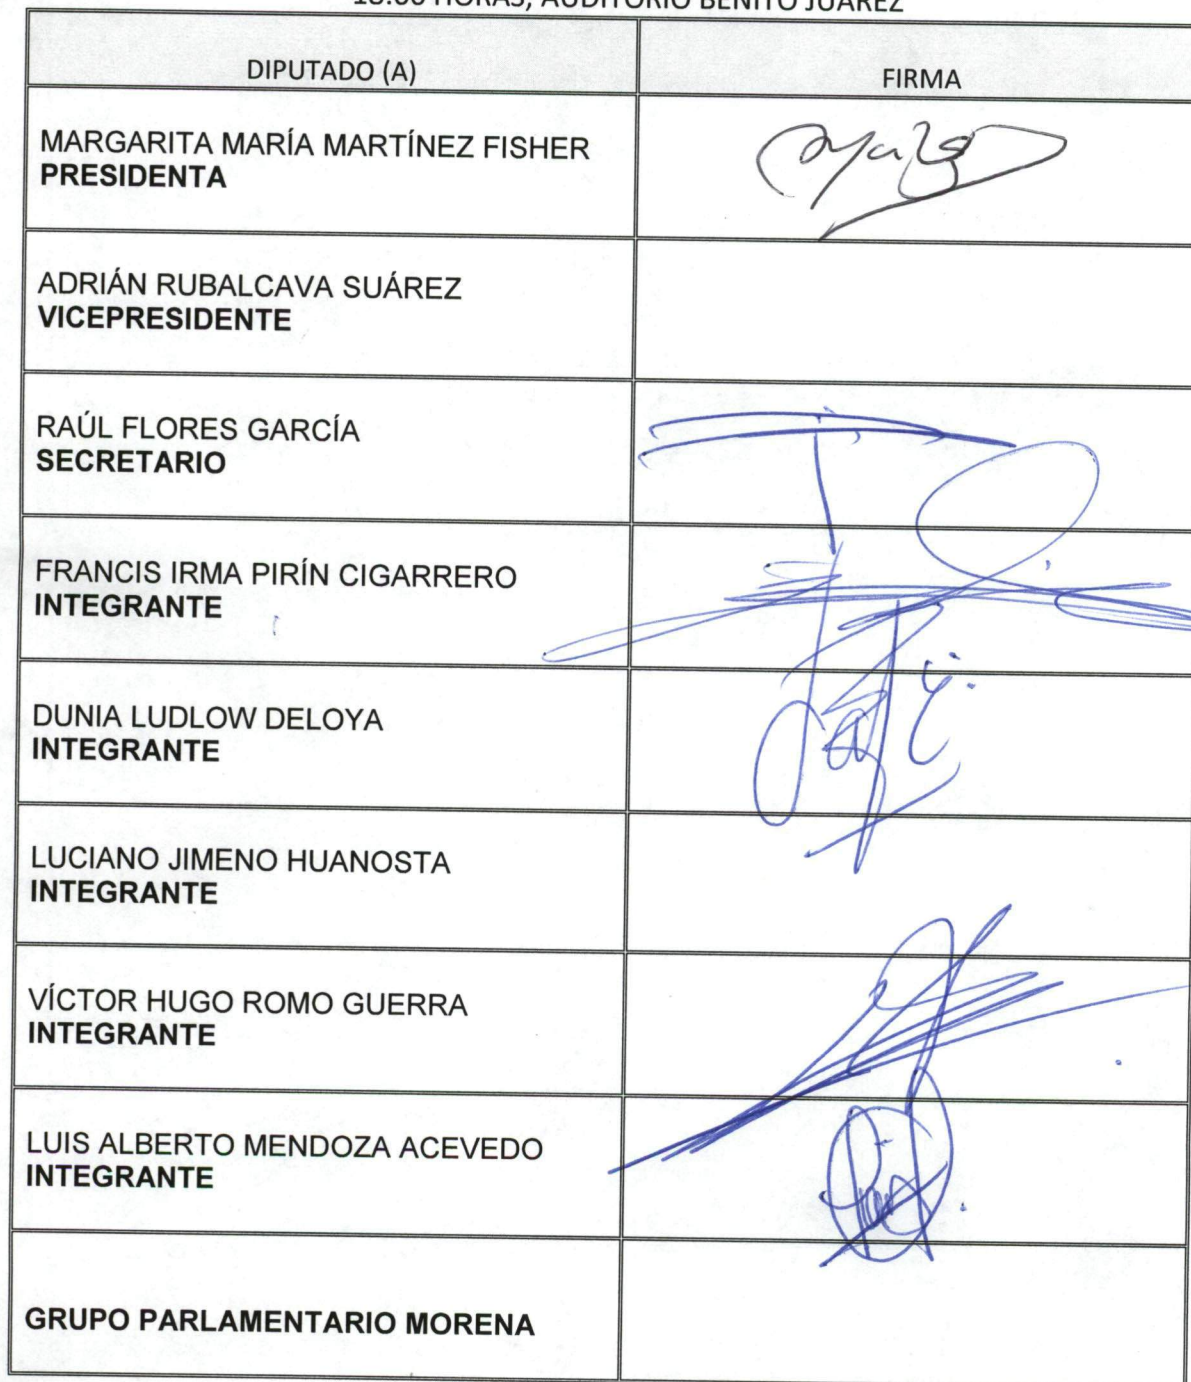 HORAS, AUDITORIO BENITO JUÁREZ
DIPUTADO (A)
FIRMA
MARGARITA MARÍA MARTÍNEZ FISHER
PRESIDENTA
ADRIÁN RUBALCAVA SUÁREZ
VICEPRESIDENTE
RAÚL FLORES GARCÍA
SECRETARIO
FRANCIS IRMA PIRÍN CIGARRERO
INTEGRANTE
DUNIA LUDLOW DELOYA
INTEGRANTE
LUCIANO JIMENO HUANOSTA
INTEGRANTE
VÍCTOR HUGO ROMO GUERRA
INTEGRANTE
LUIS ALBERTO MENDOZA ACEVEDO
INTEGRANTE
GRUPO PARLAMENTARIO MORENA